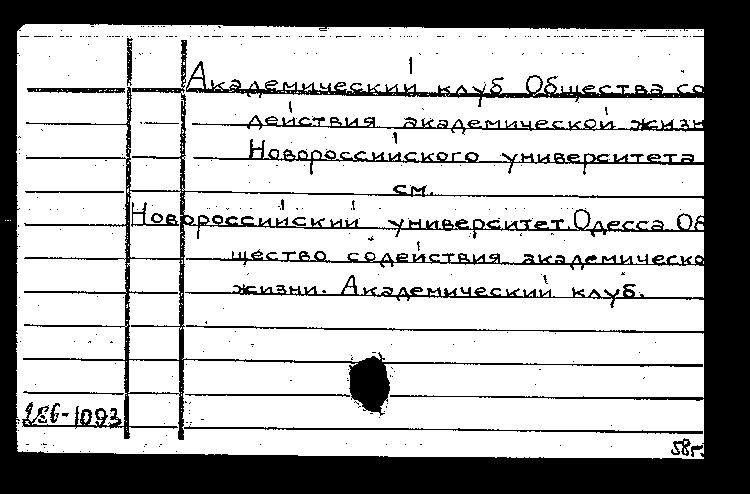 Академический клуб Общества со
действия академической жизн
Новороссийского университета
см.
Новороссийский университет. Одесса. Об
щество содействия академическо
жизни. Академический клуб.
286-1093
58г.